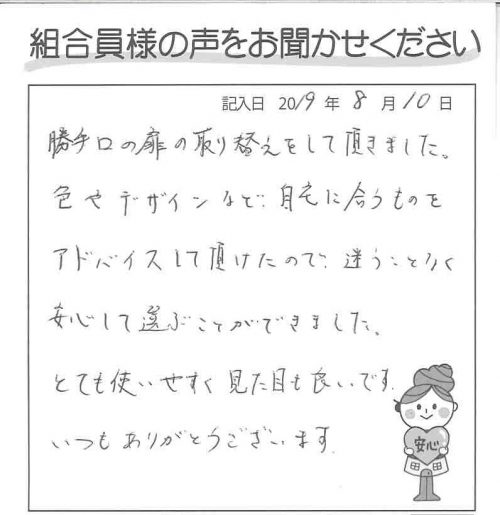 組合員様の声をお聞かせください
記入日 2019年 8月10日
勝手口の扉の取り替えをして頂きました。
色やデザインなど、自宅に合うものを
アドバイスして頂けたので、迷うことなく
安心して選ぶことができました。
とても使いやすく見た目も良いです。
いつもありがとうございます。
安心